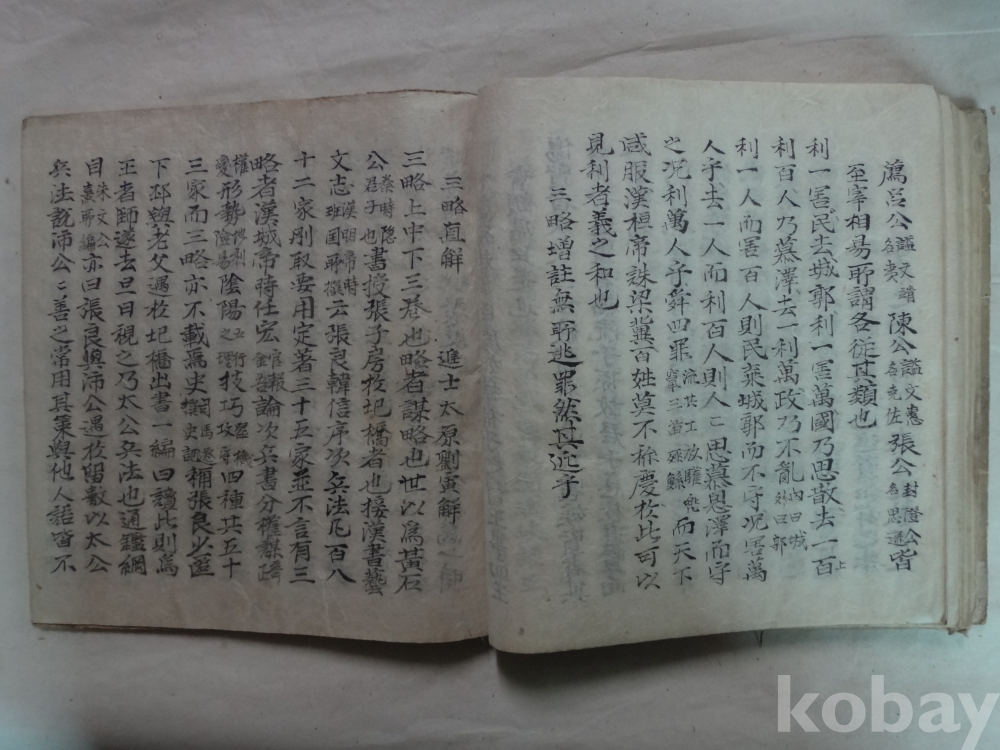 薦呂公 諡文靖名夷 陳公 諡文惠名克佐 張公 封證公名思遜 皆
至宰相易所謂各從其類也
利一害民去城郭利一害萬國乃思散去一百
利百人乃慕澤去一利萬政乃不亂 內曰城外曰郭 上
利一人而害百人則民棄城郭而不守況害萬
人乎去一人而利百人則人〻思慕恩澤而守
之況利萬人乎舜四罪 流共工放驩兜竄三苗殛鯀 而天下
咸服漢桓帝誅梁冀百姓莫不称慶於此可以
見利者義之和也
三略增註無所逃罪然其近乎
三略直解 進士太原劉寅解
三略上中下三卷也略者謀略也世以爲黃石
公 秦時隱君子也 書授張子房於圯橋者也接漢書藝
文志 漢明帝時班固所撰 云張良韓信序次兵法凡百八
十二家刪取要用定著三十五家並不言有三
略者漢城帝時任宏 官名 論次兵書分權謀
權變 形勢 儉易 陰陽 五行之理 技巧 器機攻守 四種共五十
三家而三略亦不載焉史 稱張良少匿
下邳與老父遇於圯橋出書一編曰讀此則爲
王者師遂去旦日視之乃太公兵法也通鑑綱
目 朱文公熹所編 亦曰張良與沛公遇於留數以太公
兵法說沛公〻善之常用其策與他人語皆不
kobay